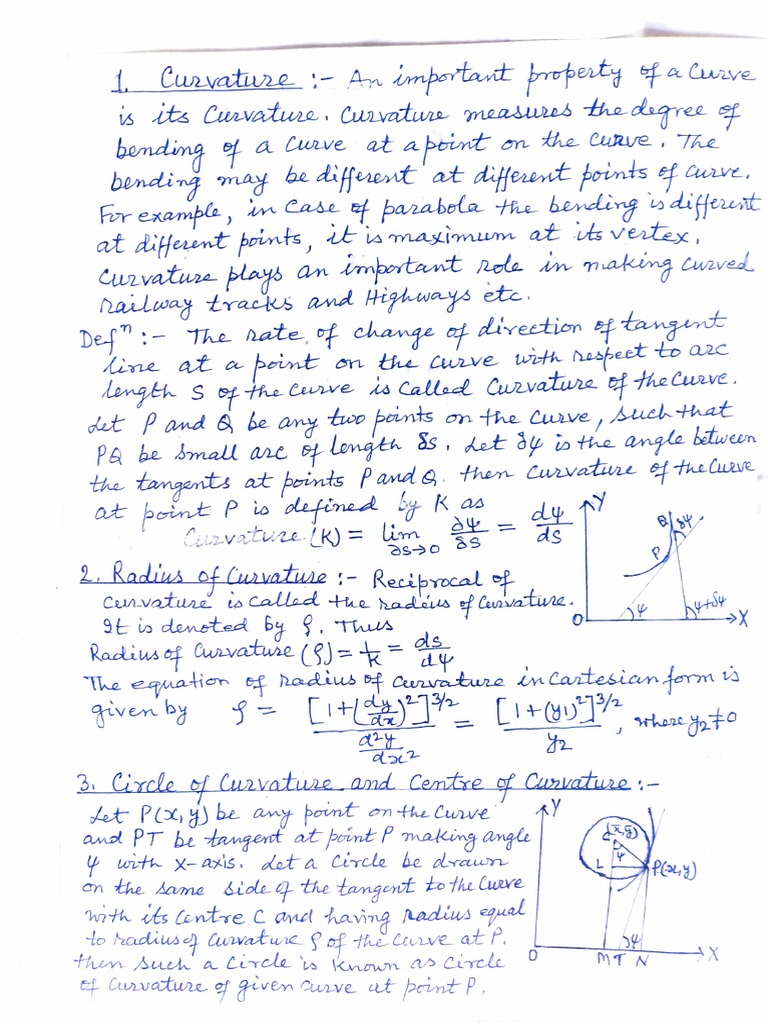 1. Curvature :- An important property of a curve
is its Curvature. Curvature measures the degree of
bending of a curve at a point on the curve. The
bending may be different at different points of curve.
For example, in case of parabola the bending is different
at different points, it is maximum at its vertex.
Curvature plays an important role in making curved
railway tracks and Highways etc.
Defⁿ :- The rate of change of direction of tangent
line at a point on the curve with respect to arc
length S of the curve is called Curvature of the curve.
Let P and Q be any two points on the curve, such that
PQ be small arc of length δs. Let δψ is the angle between
the tangents at points P and Q. then curvature of the curve
at point P is defined by K as
Curvature (K) = lim ∂s→0 ∂ψ/δs = dψ/ds
Y Q δψ P O ψ ψ+δψ X
2. Radius of Curvature :- Reciprocal of
curvature is called the radius of Curvature.
It is denoted by ρ. Thus
Radius of Curvature (ρ) = 1/K = ds/dψ
The equation of radius of curvature in Cartesian form is
given by ρ = [1+(dy/dx)²]^3/2 / d²y/dx² = [1+(y1)²]^3/2 / y2, where y2≠0
3. Circle of Curvature and Centre of Curvature :-
Let P(x,y) be any point on the curve
and PT be tangent at point P making angle
ψ with x-axis. Let a Circle be drawn
on the same side of the tangent to the curve
with its Centre C and having radius equal
to radius of curvature ρ of the curve at P.
then such a circle is known as circle
of curvature of given curve at point P.
Y C (x̄,ȳ) ψ L P(x,y) ψ O M T N X